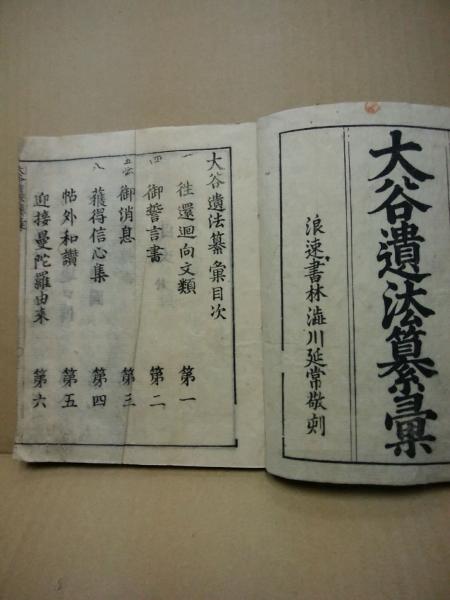 大谷遺法纂彙
浪速書林澁川延常敬刻
大谷遺法纂彙目次
一 徃還迴向文類 第一
四 御誓言書 第二
御消息 第三
八 獲得信心集 第四
帖外和讃 第五
迎接曼陀羅由来 第六